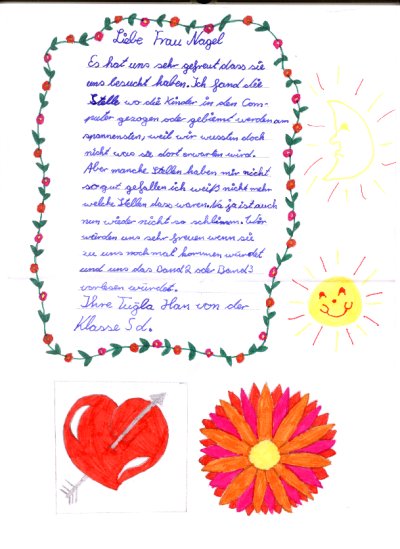 Liebe Frau Nagel
Es hat uns sehr gefreut dass sie
uns besucht haben. Ich fand die
Stelle wo die Kinder in den Com-
puter gezogen oder gebeamt werden am
spannensten, weil wir wussten doch
nicht was sie dort erwarten wird.
Aber manche Stellen haben mir nicht
so gut gefallen ich weiß nicht mehr
welche Stellen dass waren. Na ja ist auch
nun wieder nicht so schlimm. Wir
würden uns sehr freuen wenn sie
zu uns noch mal kommen würdet
und uns das Band 2 oder Band 3
vorlesen würdet.
Ihre Tuğla Han von der
Klasse 5d.